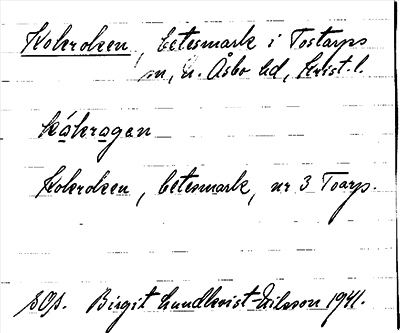 Kohroken, betesmark i Tostarps
sn, n. Åsbo hd, Krist. l.
kåhragen
Kohroken, betesmark, nr 3 Toarp.
SOp. Birgit Lundkvist-Nilsson 1941.